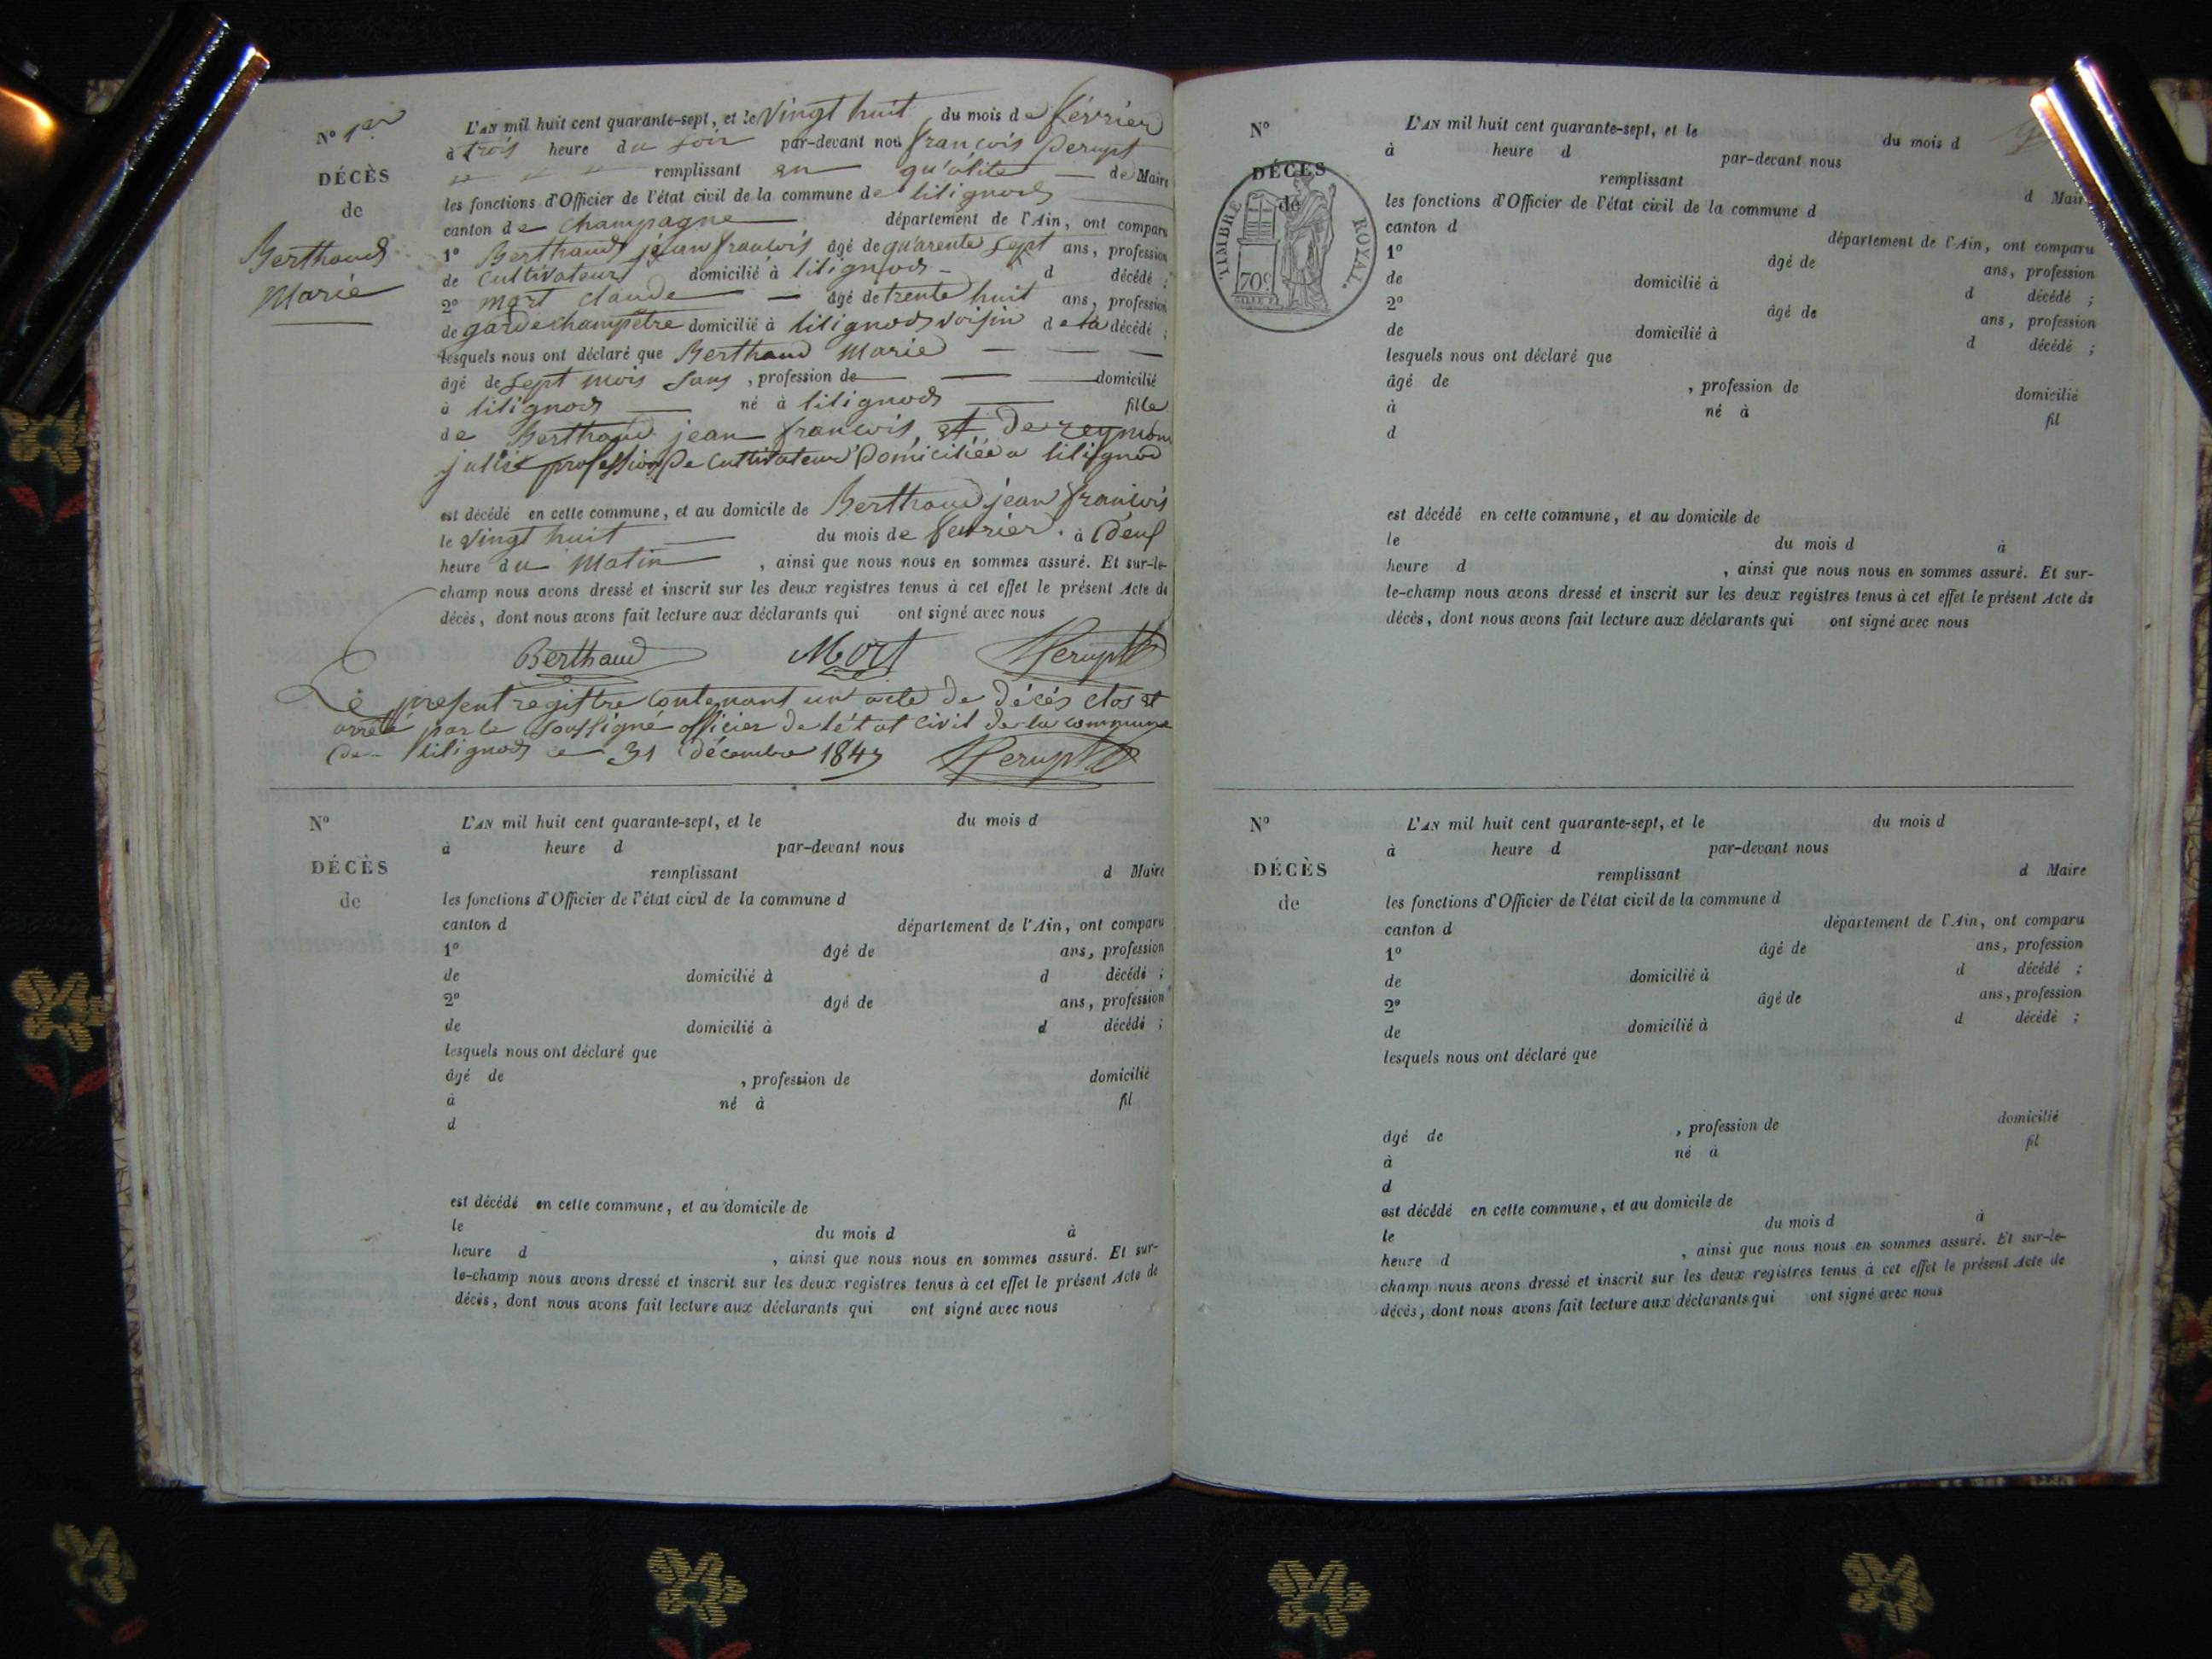 N° 1er
DÉCÈS
de
Berthoud
Marie
L'AN mil huit cent quarante-sept, et le Vingt huit du mois de février
à trois heure du soir par-devant nou françois Perupt
remplissant en qu'alité de Maire
les fonctions d'Officier de l'état civil de la commune de lilignods
canton de Champagne département de l'Ain, ont comparu
1° Berthaud jean francois âgé de quarente sept ans, profession
de Cultivateur domicilié à lilignods d décédé ;
2° mort claude âgé de trente huit ans, profession
de garde champêtre domicilié à lilignods voisin de la décédé ;
lesquels nous ont déclaré que Berthaud Marie
âgé de sept mois sans , profession de domicilié
à lilignods né à lilignods fille
de Berthaud jean francois et de reymon
julie profession de Cultivateur Domiciliée a lilignod
est décédé en cette commune, et au domicile de Berthaud jean francois
le Vingt huit du mois de fevrier à Deuf
heure du Matin , ainsi que nous nous en sommes assuré. Et sur-le-
champ nous avons dressé et inscrit sur les deux registres tenus à cet effet le présent Acte de
décès, dont nous avons fait lecture aux déclarants qui ont signé avec nous
Berthaud Mort Perupt
Le present registre contenant un acte de décès clos et
arrêté par le Soussigné officier de l'état Civil de la commune
de lilignods ce 31 décembre 1847 Perupt
N°
DÉCÈS
de
L'AN mil huit cent quarante-sept, et le du mois d
à heure d par-devant nous
remplissant d Maire
les fonctions d'Officier de l'état civil de la commune d
canton d département de l'Ain, ont comparu
1° âgé de ans, profession
de domicilié à d décédé ;
2° âgé de ans, profession
de domicilié à d décédé ;
lesquels nous ont déclaré que
âgé de , profession de domicilié
à né à fil
d
est décédé en cette commune, et au domicile de
le du mois d à
heure d , ainsi que nous nous en sommes assuré. Et sur-
le-champ nous avons dressé et inscrit sur les deux registres tenus à cet effet le présent Acte de
décès, dont nous avons fait lecture aux déclarants qui ont signé avec nous
N°
DÉCÈS
de
TIMBRE ROYAL.
70c
L'AN mil huit cent quarante-sept, et le du mois d
à heure d par-devant nous
remplissant d Mair
les fonctions d'Officier de l'état civil de la commune d
canton d département de l'Ain, ont comparu
1° âgé de ans, profession
de domicilié à d décédé ;
2° âgé de ans, profession
de domicilié à d décédé ;
lesquels nous ont déclaré que
âgé de , profession de domicilié
à né à fil
d
est décédé en cette commune, et au domicile de
le du mois d à
heure d , ainsi que nous nous en sommes assuré. Et sur-
le-champ nous avons dressé et inscrit sur les deux registres tenus à cet effet le présent Acte de
décès, dont nous avons fait lecture aux déclarants qui ont signé avec nous
N°
DÉCÈS
de
L'AN mil huit cent quarante-sept, et le du mois d
à heure d par-devant nous
remplissant d Maire
les fonctions d'Officier de l'état civil de la commune d
canton d département de l'Ain, ont comparu
1° âgé de ans, profession
de domicilié à d décédé ;
2° âgé de ans, profession
de domicilié à d décédé ;
lesquels nous ont déclaré que
âgé de , profession de domicilié
à né à fil
d
est décédé en cette commune, et au domicile de
le du mois d à
heure d , ainsi que nous nous en sommes assuré. Et sur-le-
champ nous avons dressé et inscrit sur les deux registres tenus à cet effet le présent Acte de
décès, dont nous avons fait lecture aux déclarants qui ont signé avec nous